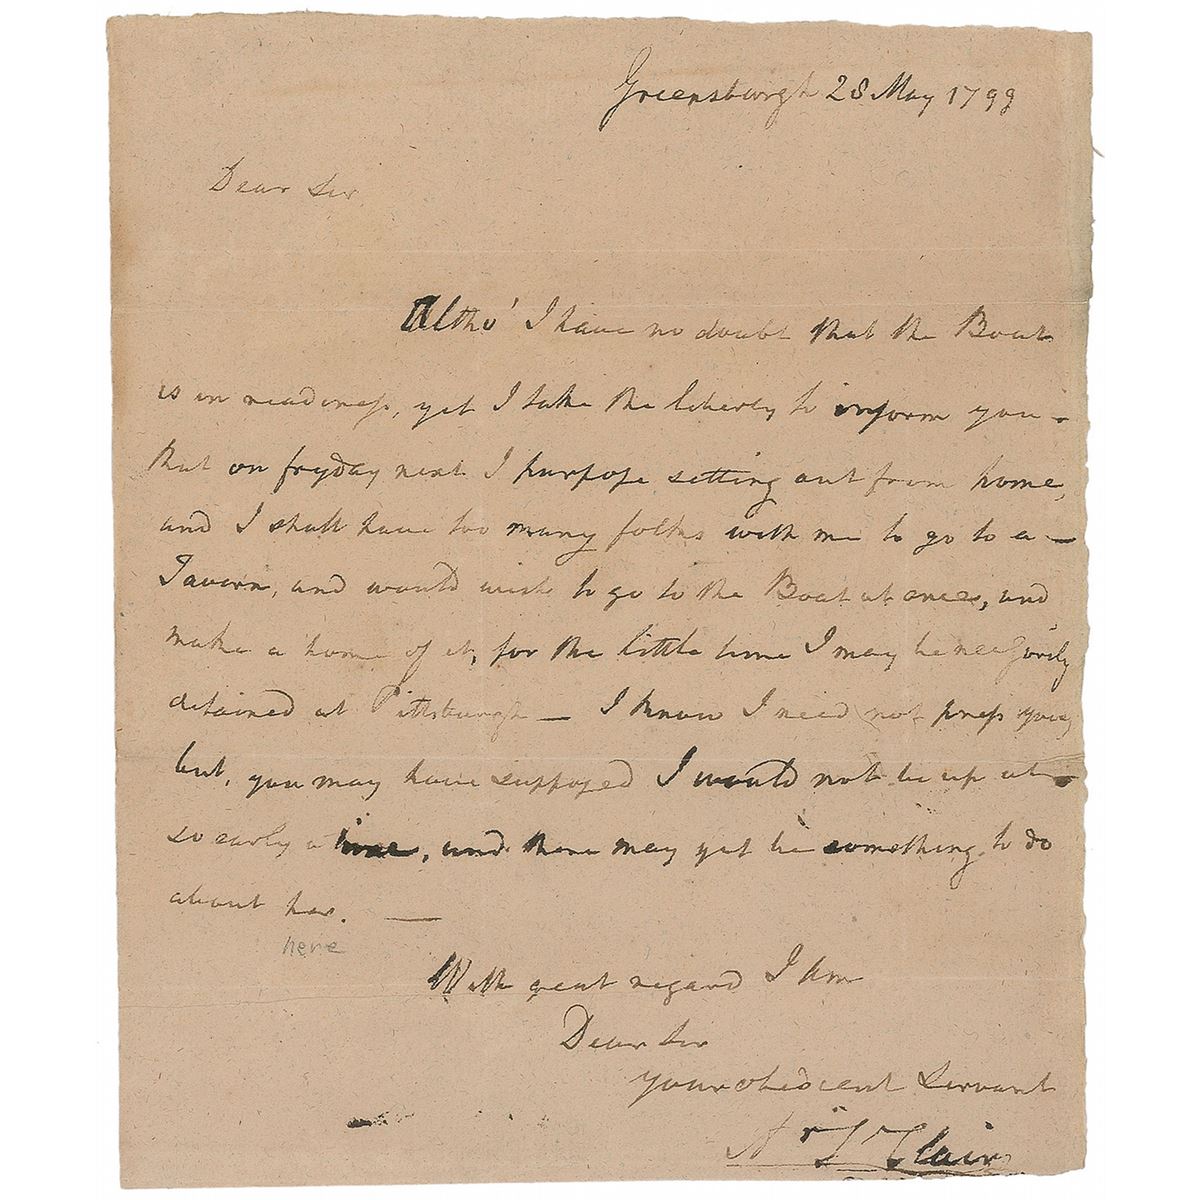 Greensburgh 28 May 1799
Dear Sir
Altho' I have no doubt that the Boat
is in readiness, yet I take the liberty to inform you –
that on fryday next I purpose setting out from home,
and I shall have too many folks with me to go to a –
Tavern, and would wish to go to the Boat at once, and
make a home of it, for the little time I may be necessarily
detained at Pittsburgh – I know I need not press you,
but, you may have supposed I would not be up at
so early a time, and there may yet be something to do
about her. —
here
With great regard I am
Dear Sir
your obedient Servant
Ar St Clair